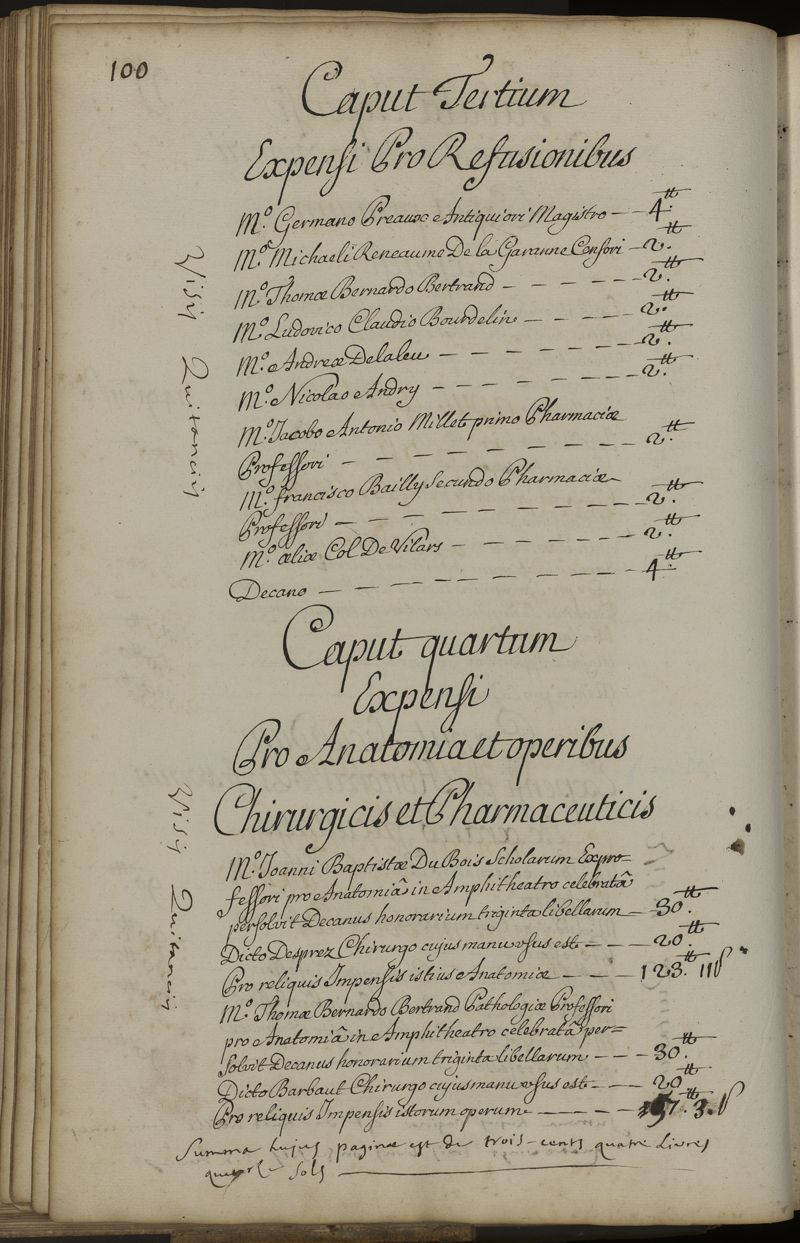 100
Caput Tertium
Expensi Pro Refusionibus
M.º Germano Preaux Antiquiori Magistro — 4.tt
M.º Michaeli Reneaume De la Garanne Censori — 2.tt
M.º Thomæ Bernardo Bertrand — 2.tt
M.º Ludovico Claudio Bourdelin — 2.tt
M.º Andreæ Delaleu — 2.tt
M.º Nicolao Andry — 2.tt
M.º Jacobo Antonio Millet primo Pharmaciæ
Professori — 2.tt
M.º francisco Bailly Secundo Pharmaciæ
Professori — 2.tt
M.º æliæ Col De Vilars — 2.tt
Decano — 4.tt
Visis Quitanciis
Caput quartum
Expensi
Pro Anatomia et operibus
Chirurgicis et Pharmaceuticis
M.º Joanni Baptistæ Du Bois Scholarum Expro=
fessori pro Anatomiâ in Amphitheatro celebratâ
persolvit Decanus honorarium triginta libellarum — 30.tt
Dicto Desprez Chirurgo cujus manu usus est — 20.tt
Pro reliquis Impensis istius Anatomiæ — 123.tt 11ſ
M.º Thomæ Bernardo Bertrand Pathologiæ Professori
pro Anatomiâ in Amphitheatro celebratâ per=
solvit Decanus honorarium triginta libellarum — 30.tt
Dicto Barbaut Chirurgo cujus manu usus est — 20.tt
Pro reliquis Impensis istorum operum — 57.tt 3.ſ
Visis Quitanciis
Summa hujus paginæ est de trois-cents quatre Livres
quatorze sols